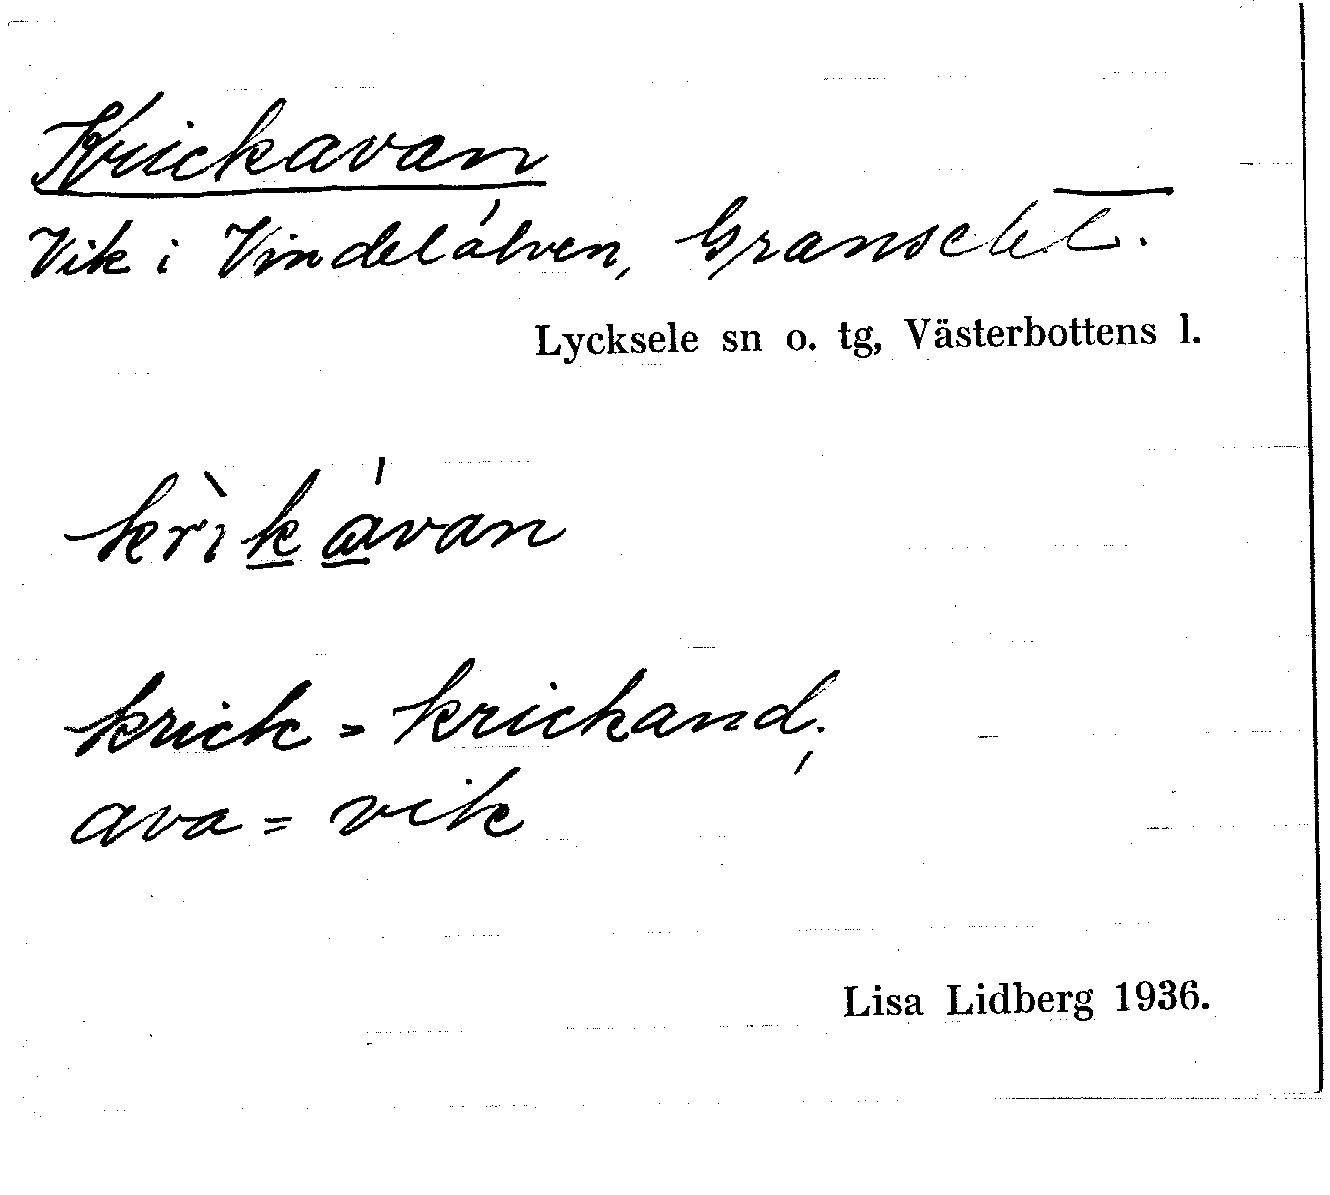 Krickavan
Vik i Vindelälven, Gransele.
Lycksele sn o. tg, Västerbottens l.
krìkávan
krick = krickand,
ava = vik
Lisa Lidberg 1936.